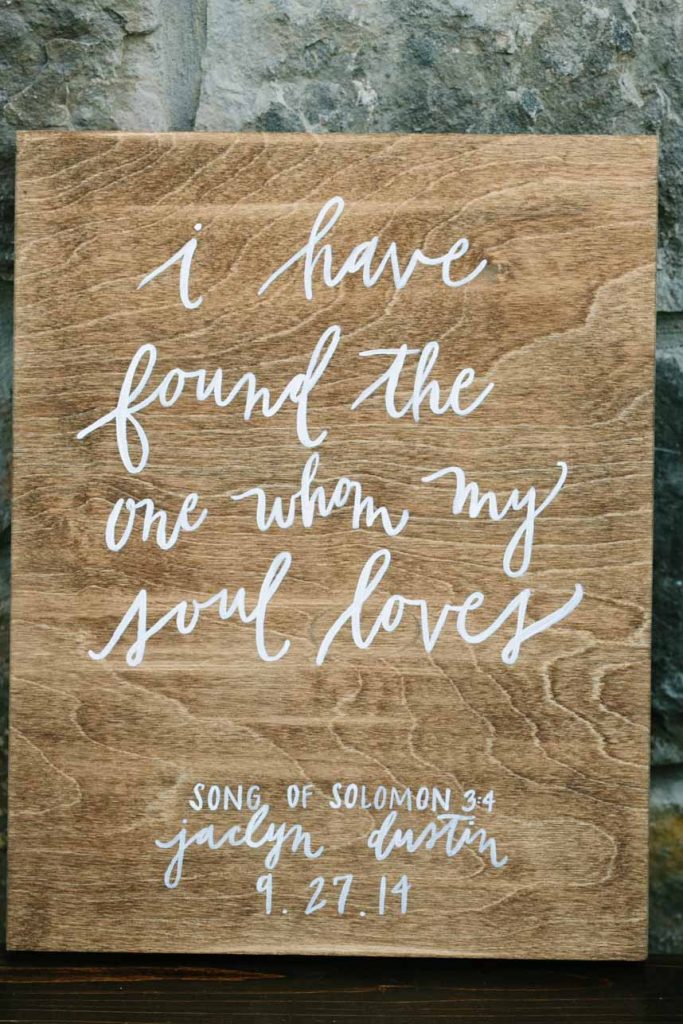 i have
found the
one whom my
soul loves
SONG OF SOLOMON 3:4
jaclyn dustin
9.27.14